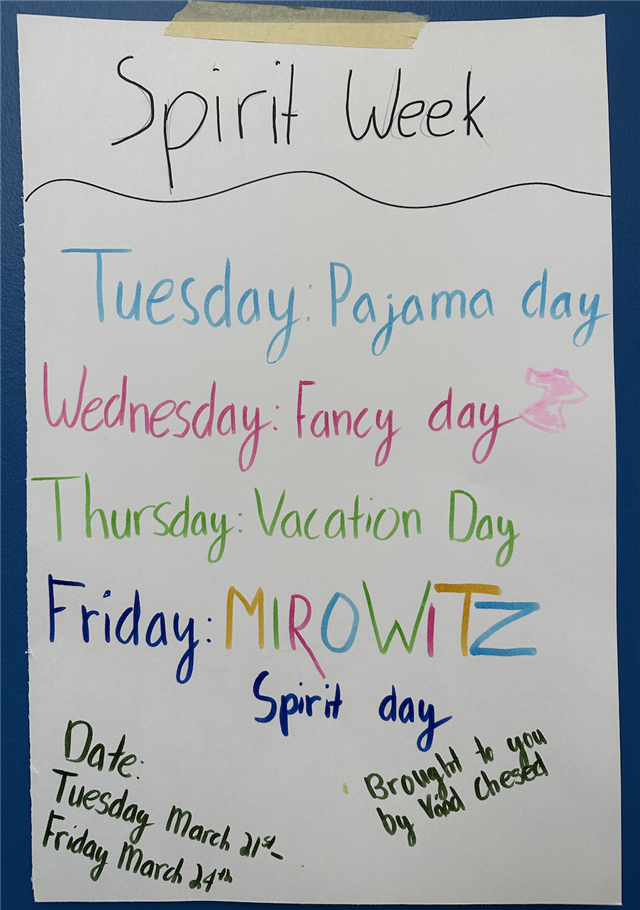 Spirit Week
Tuesday: Pajama day
Wednesday: Fancy day
Thursday: Vacation Day
Friday: MIROWiTZ
Spirit day
Date:
Tuesday March 21st-
Friday March 24th
Brought to you
by Vaad Chesed